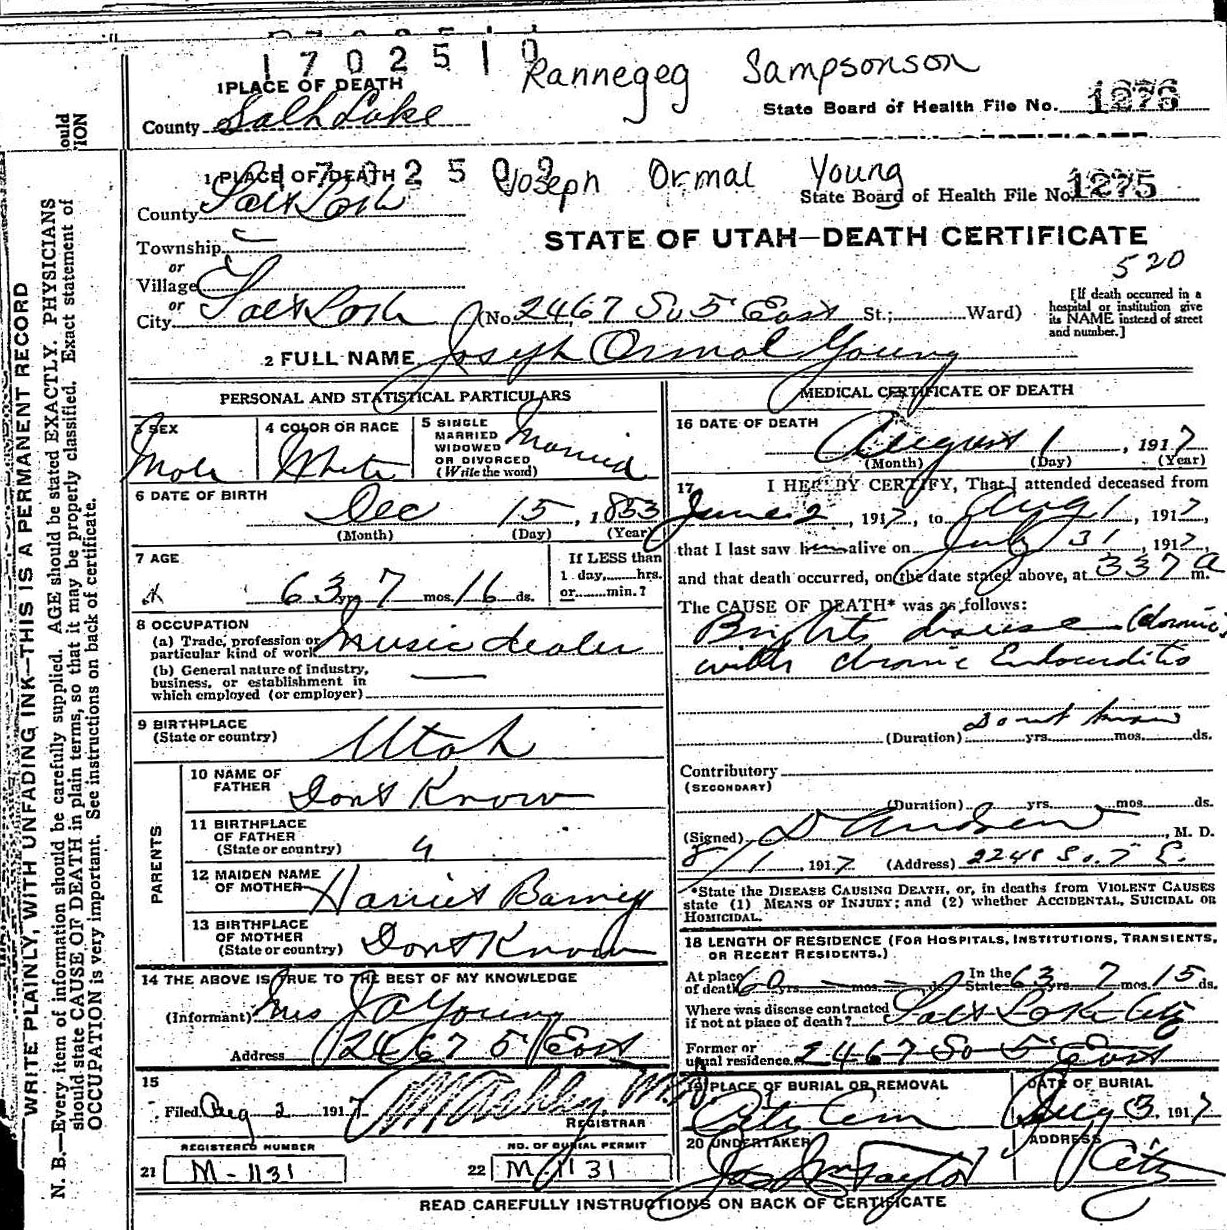 1702510
Rannegeg Sampsonson
1 PLACE OF DEATH
State Board of Health File No. 1276
County Salt Lake
1 PLACE OF DEATH
Joseph Ormal Young
State Board of Health File No. 1275
County Salt Lake
STATE OF UTAH—DEATH CERTIFICATE
Township
520
or
Village
or
City Salt Lake (No. 2467 So 5 East St.; Ward)
[If death occurred in a
hospital or institution give
its NAME instead of street
and number.]
2 FULL NAME Joseph Ormal Young
PERSONAL AND STATISTICAL PARTICULARS
3 SEX
Male
4 COLOR OR RACE
White
5 SINGLE
MARRIED
WIDOWED
OR DIVORCED
(Write the word)
Married
6 DATE OF BIRTH
Dec 15, 1853
(Month) (Day) (Year)
7 AGE
63 yrs. 7 mos. 16 ds.
If LESS than
1 day, hrs.
or min.?
8 OCCUPATION
(a) Trade, profession or
particular kind of work Music dealer
(b) General nature of industry,
business, or establishment in
which employed (or employer)
9 BIRTHPLACE
(State or country)
Utah
PARENTS
10 NAME OF
FATHER
Dont Know
11 BIRTHPLACE
OF FATHER
(State or country)
12 MAIDEN NAME
OF MOTHER
Harriet Barney
13 BIRTHPLACE
OF MOTHER
(State or country) Dont Know
14 THE ABOVE IS TRUE TO THE BEST OF MY KNOWLEDGE
(Informant) Mrs J O Young
Address 2467 5 East
15
Filed Aug 2 1917
REGISTRAR
REGISTERED NUMBER
21 M-1131
NO. OF BURIAL PERMIT
22 M-1131
MEDICAL CERTIFICATE OF DEATH
16 DATE OF DEATH
August 1, 1917
(Month) (Day) (Year)
17 I HEREBY CERTIFY, That I attended deceased from
June 2, 1917, to Aug 1, 1917,
that I last saw him alive on July 31, 1917,
and that death occurred, on the date stated above, at 337 a m.
The CAUSE OF DEATH* was as follows:
Brights disease (chronic)
with chronic Endocarditis
dont know
(Duration) yrs. mos. ds.
Contributory
(SECONDARY)
(Duration) yrs. mos. ds.
(Signed) M. D.
8/1, 1917 (Address) 2241 So. 5 E.
*State the DISEASE CAUSING DEATH, or, in deaths from VIOLENT CAUSES
state (1) MEANS OF INJURY; and (2) whether ACCIDENTAL, SUICIDAL OR
HOMICIDAL.
18 LENGTH OF RESIDENCE (FOR HOSPITALS, INSTITUTIONS, TRANSIENTS,
OR RECENT RESIDENTS.)
At place
of death 60 yrs. mos. ds. In the
State 63 yrs. 7 mos. 15 ds.
Where was disease contracted
if not at place of death? Salt Lake City
Former or
usual residence 2467 So 5 East
19 PLACE OF BURIAL OR REMOVAL
City Cem
DATE OF BURIAL
Aug 3, 1917
20 UNDERTAKER
Jos Wm Taylor
ADDRESS
City
READ CAREFULLY INSTRUCTIONS ON BACK OF CERTIFICATE
WRITE PLAINLY, WITH UNFADING INK—THIS IS A PERMANENT RECORD
N. B.—Every item of information should be carefully supplied. AGE should be stated EXACTLY. PHYSICIANS
should state CAUSE OF DEATH in plain terms, so that it may be properly classified. Exact statement of
OCCUPATION is very important. See instructions on back of certificate.